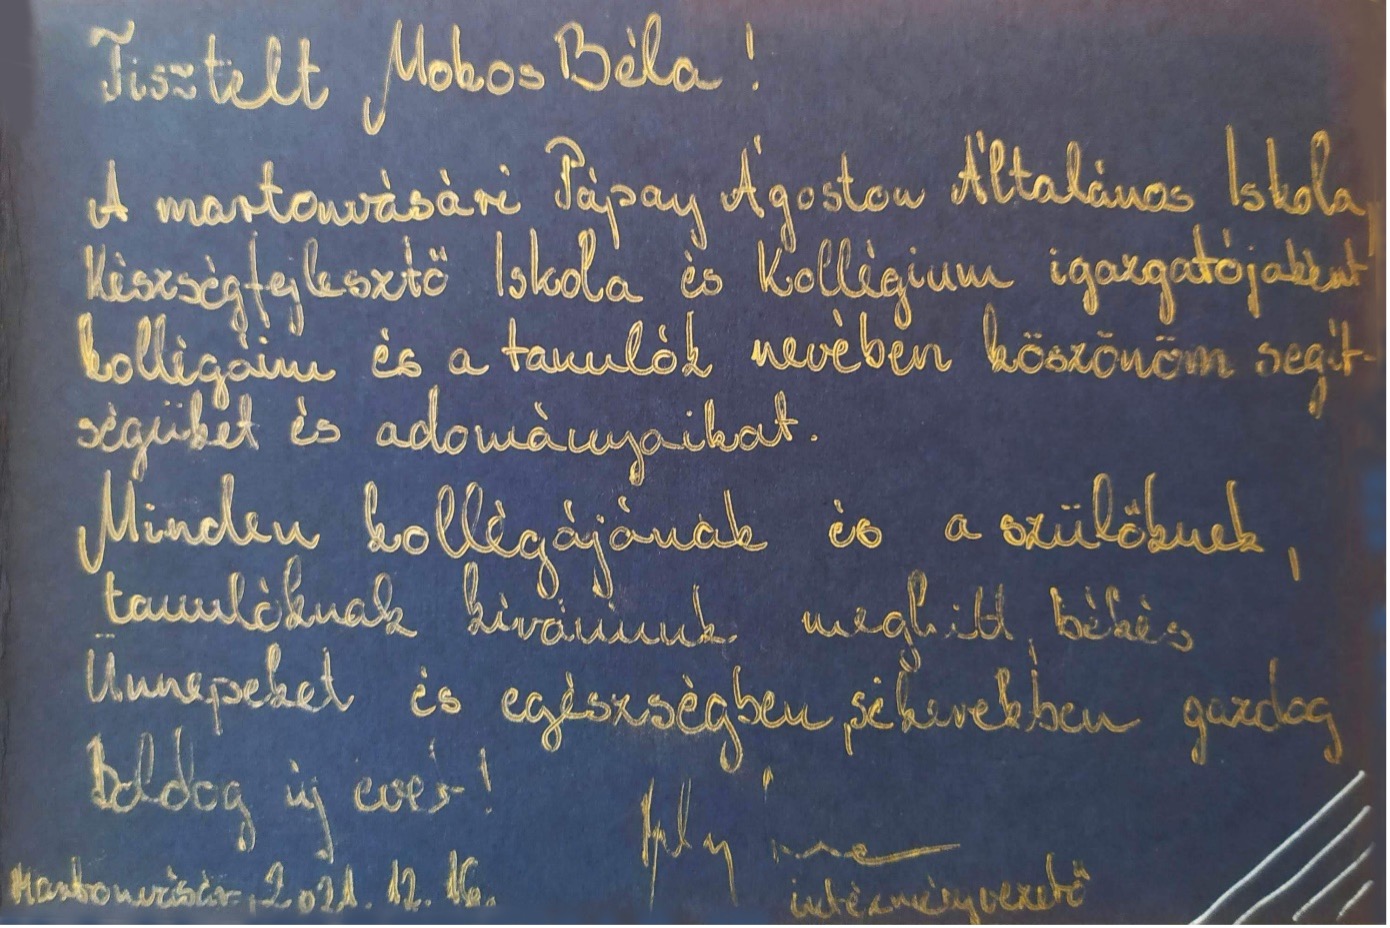 Tisztelt Mokos Béla!
A martonvásári Pápay Ágoston Általános Iskola,
Készségfejlesztő Iskola és Kollégium igazgatójaként
kollégáim és a tanulók nevében köszönöm segít-
ségüket és adományaikat.
Minden kollégájának és a szülőknek,
tanulóknak kívánunk meghitt, békés
Ünnepeket és egészségben, sikerekben gazdag
Boldog új évet!
Martonvásár, 2021. 12. 16.
intézményvezető